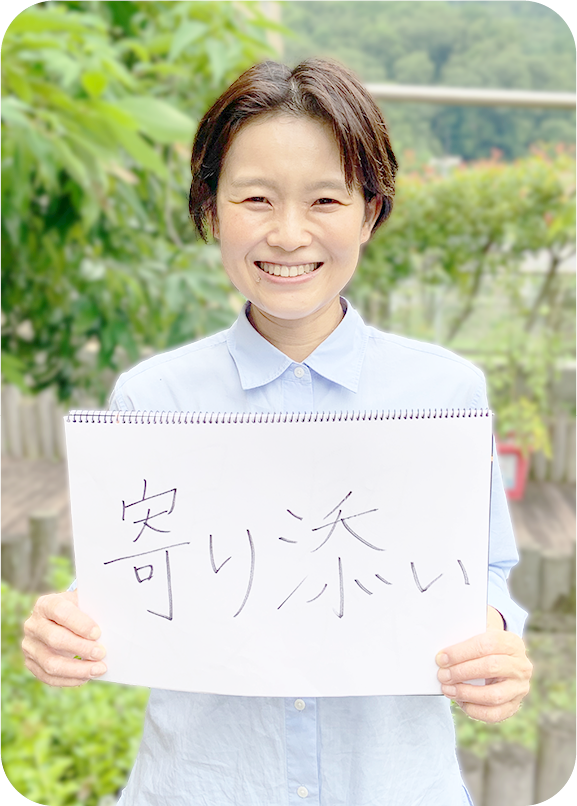 寄り添い